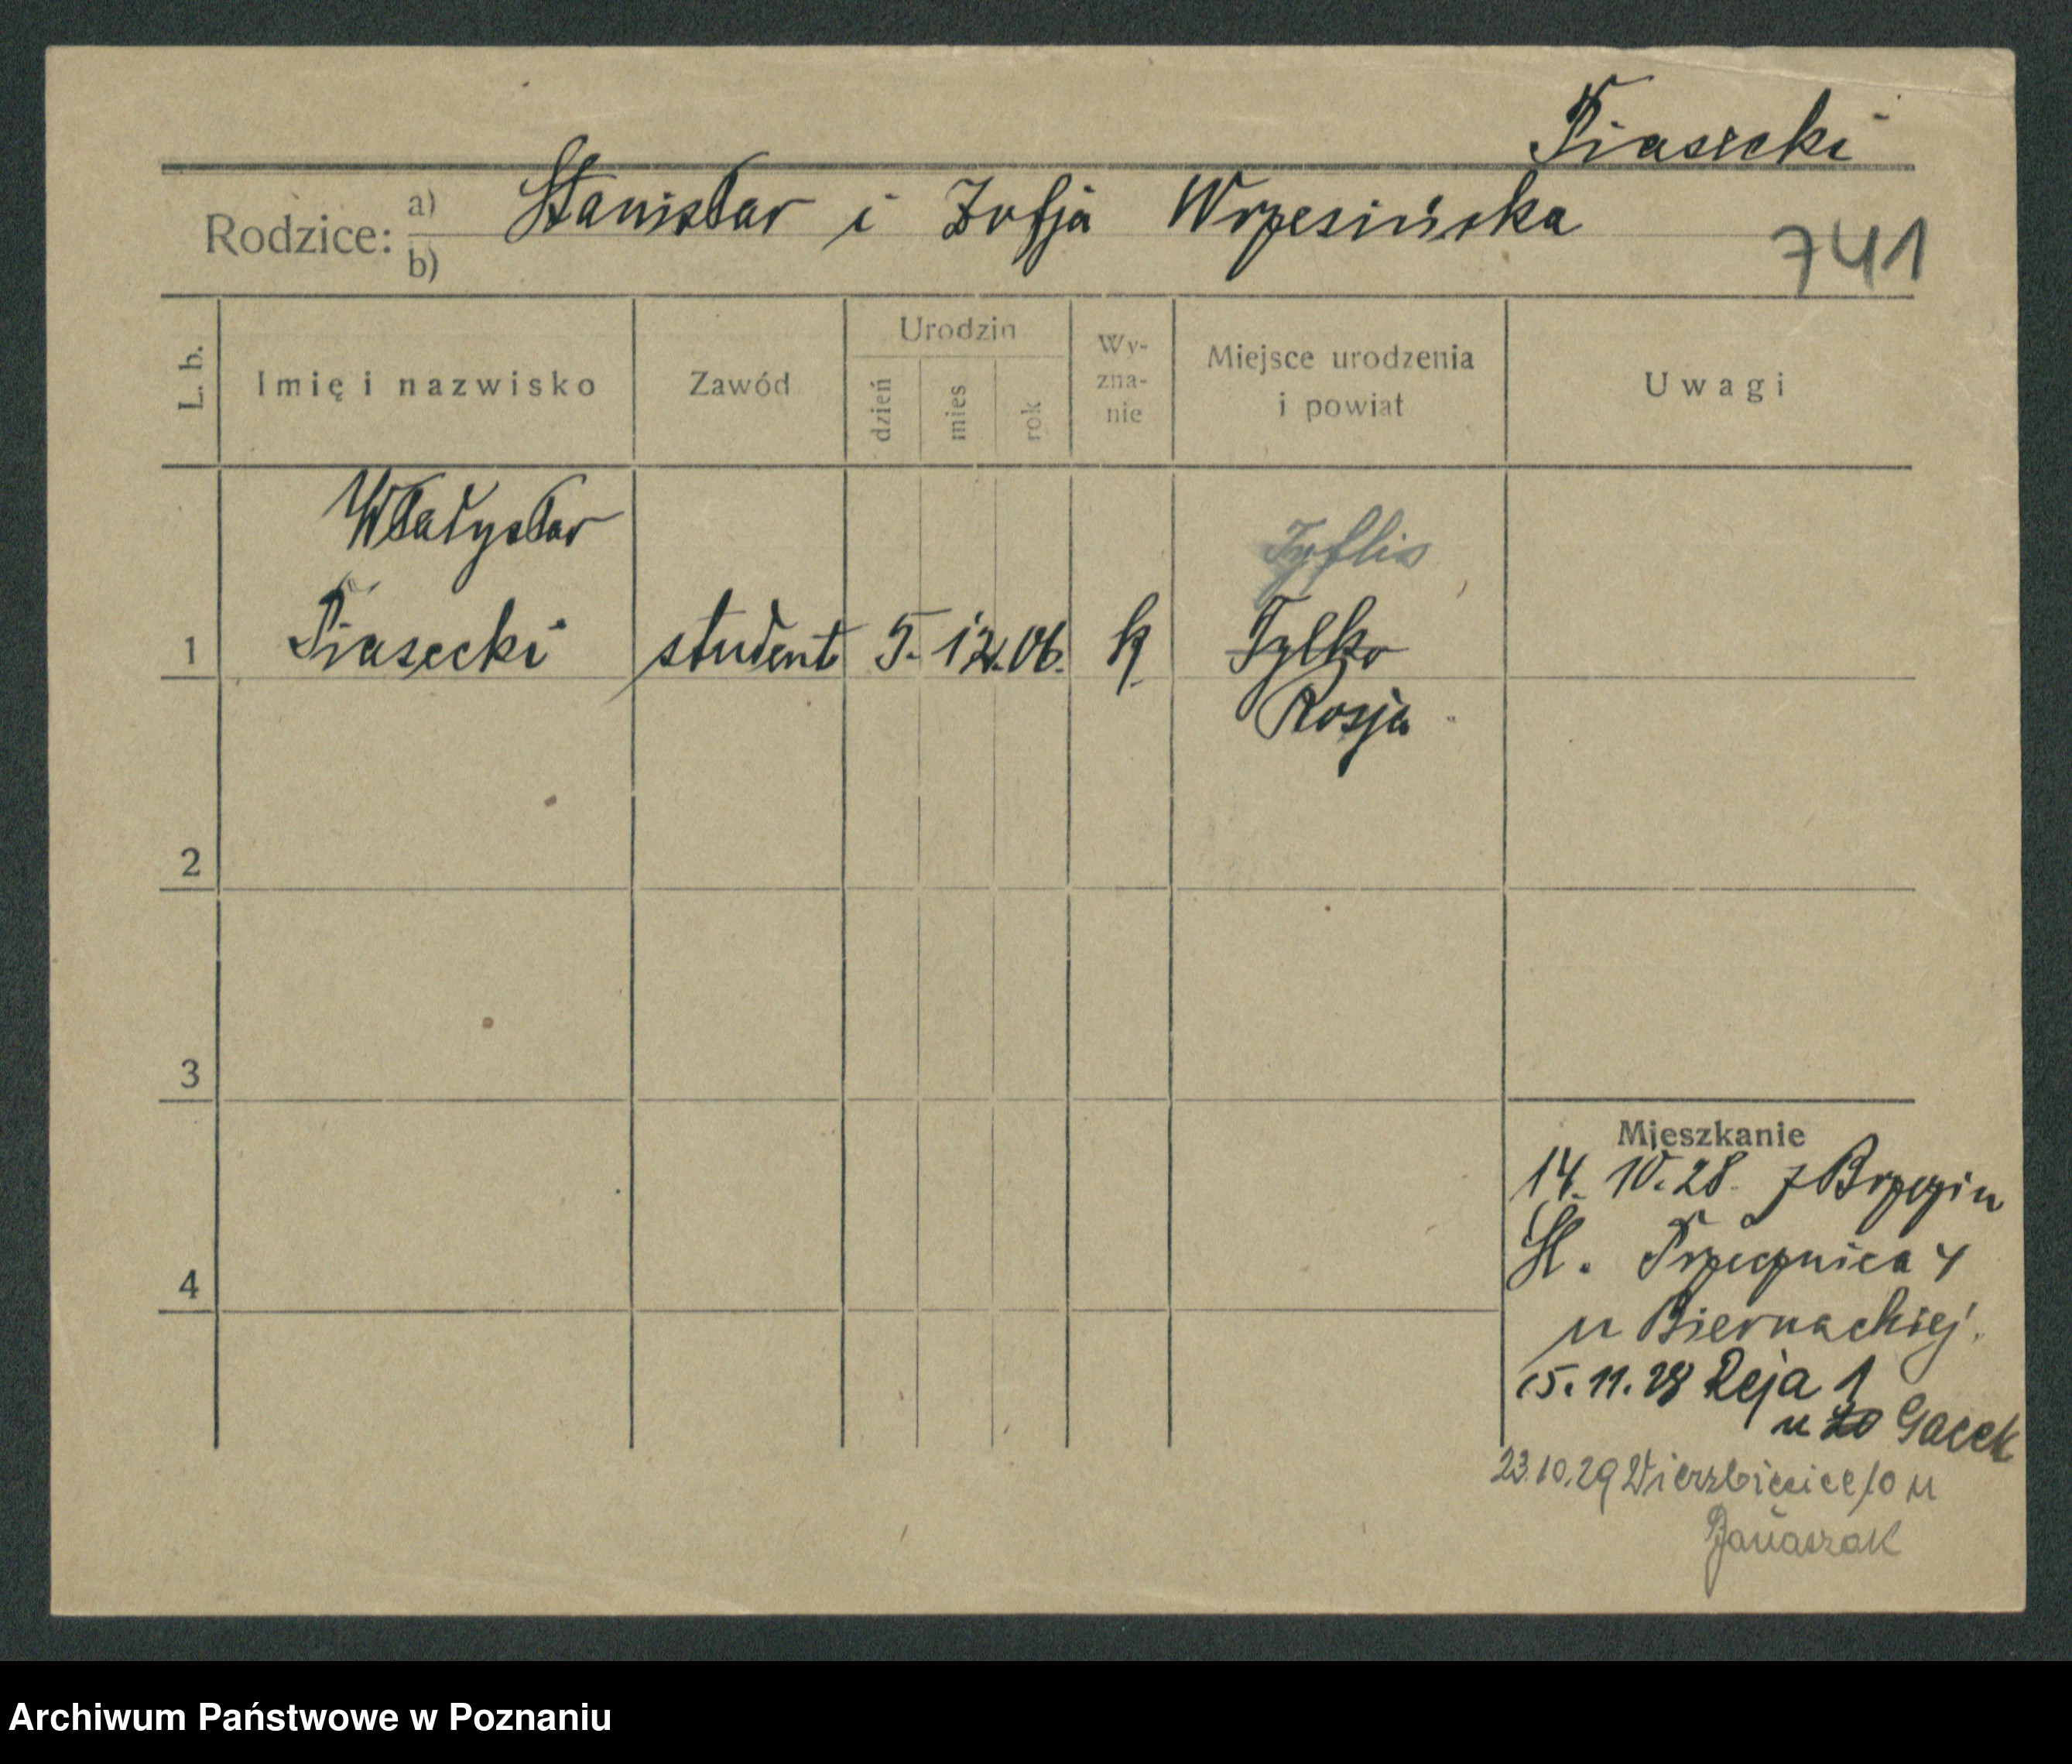 Piasecki
Rodzice: a) Stanisław i Zofja Wrzesińska
b)
741
L. b.
Imię i nazwisko
Zawód
Urodzin
dzień
mies
rok
Wy-
zna-
nie
Miejsce urodzenia
i powiat
Uwagi
Władysław
Tyflis
1 Piasecki student 5. 12. 06. k. Tylko
Rosja
2
3
4
Mieszkanie
14. 10. 28. z Brzezin
Śl. Przecznica 4
u Biernackiej.
15. 11. 28 Reja 1
u Gacek
23.10.29 Wierzbięcice 10 u
Janaszak
Archiwum Państwowe w Poznaniu